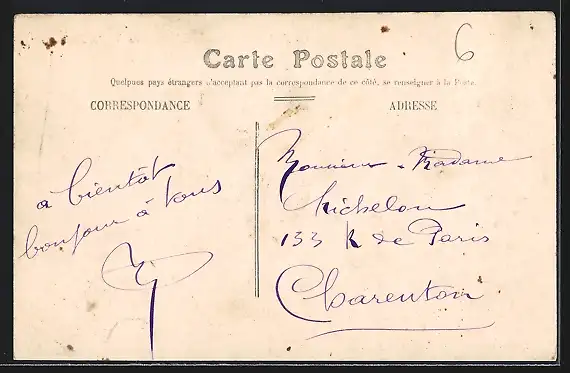 6
Carte Postale
Quelques pays étrangers n'acceptant pas la correspondance de ce côté, se renseigner à la Poste.
CORRESPONDANCE
ADRESSE
à bientôt
bonjour à tous
Monsieur - Madame
Michelon
133 R de Paris
Charenton